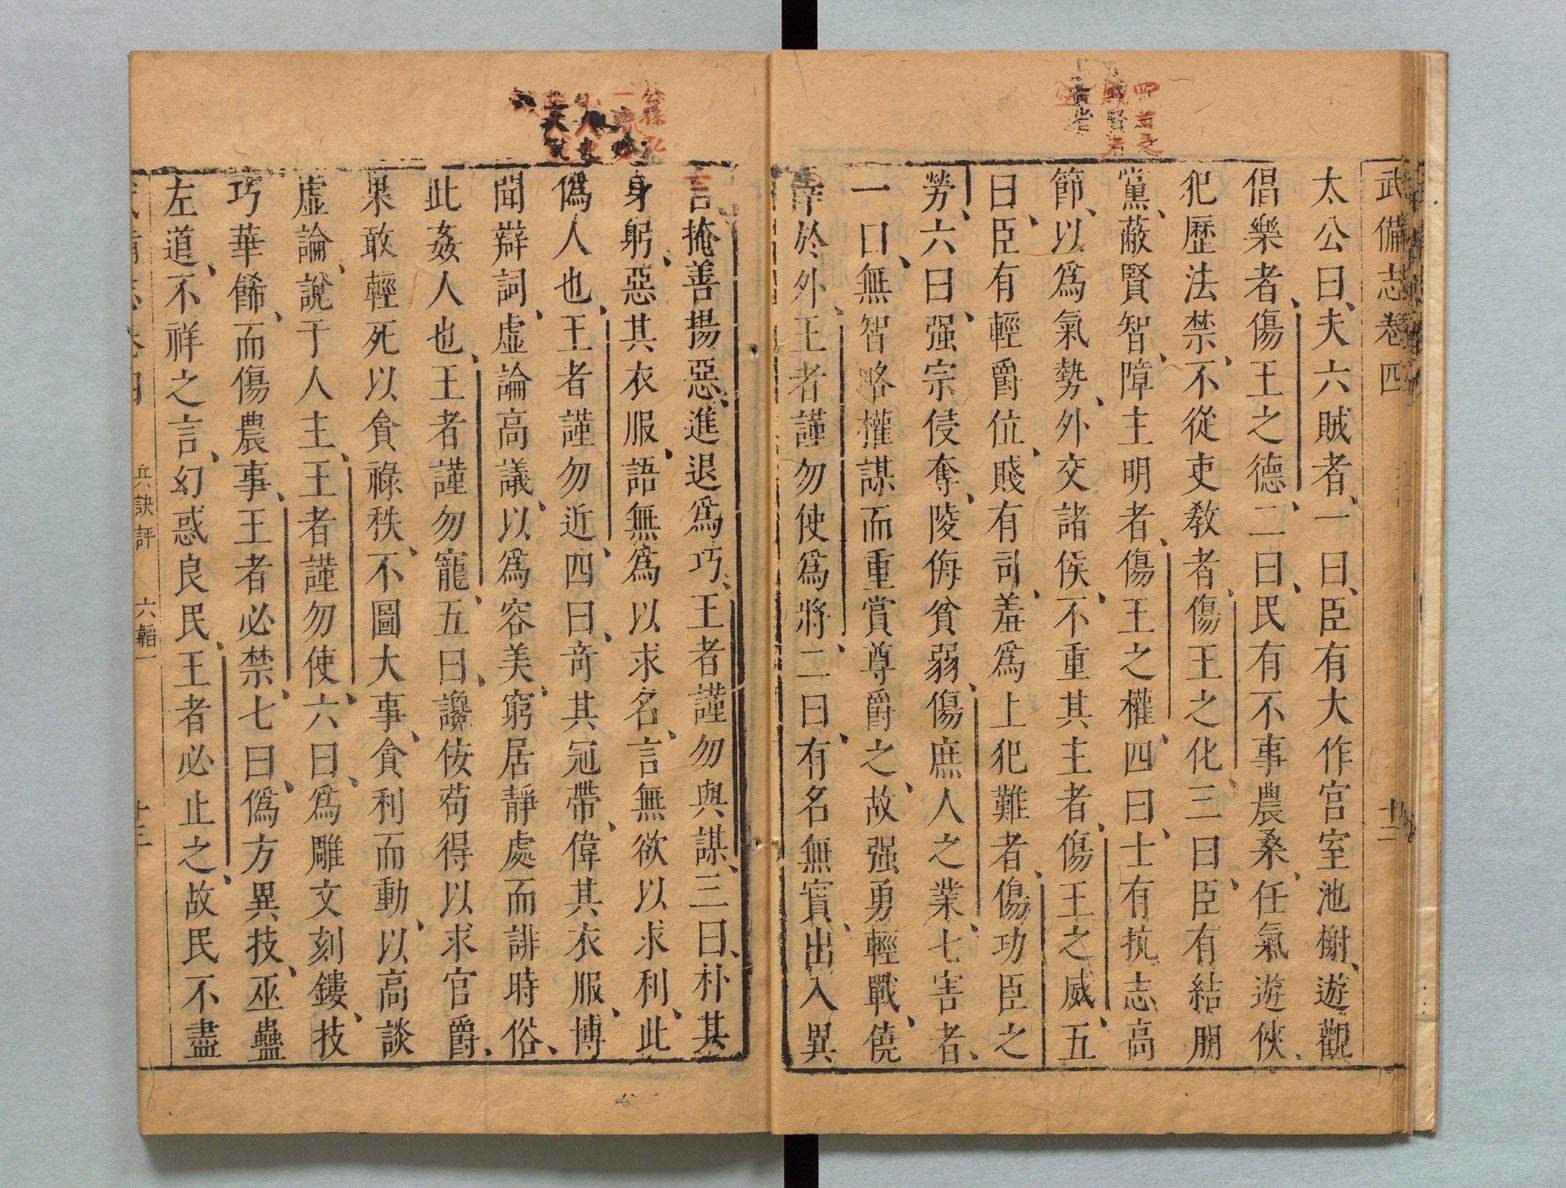 武備志卷四
太公曰夫六賊者一曰臣有大作宮室池榭遊觀
倡樂者傷王之德二曰民有不事農桑任氣遊俠
犯歷法禁不從吏敎者傷王之化三曰臣有結朋
黨蔽賢智障主明者傷王之權四曰士有抗志高
節以爲氣勢外交諸侯不重其主者傷王之威五
曰臣有輕爵位賤有司羞爲上犯難者傷功臣之
勞六曰强宗侵奪陵侮貧弱傷庶人之業七害者
一曰無智略權謀而重賞尊爵之故强勇輕戰僥
倖於外王者謹勿使爲將二曰有名無實出入異
言掩善揚惡進退爲巧王者謹勿與謀三曰朴其
身躬惡其衣服語無爲以求名言無欲以求利此
僞人也王者謹勿近四曰竒其冠帶偉其衣服博
聞辯詞虛論高議以爲容美窮居靜處而誹時俗
此姦人也王者謹勿寵五曰讒佞苟得以求官爵
果敢輕死以貪祿秩不圖大事貪利而動以高談
虛論說于人主王者謹勿使六曰爲雕文刻鏤技
巧華餙而傷農事王者必禁七曰僞方異技巫蠱
左道不祥之言幻惑良民王者必止之故民不盡
兵訣評 六韜一
十三